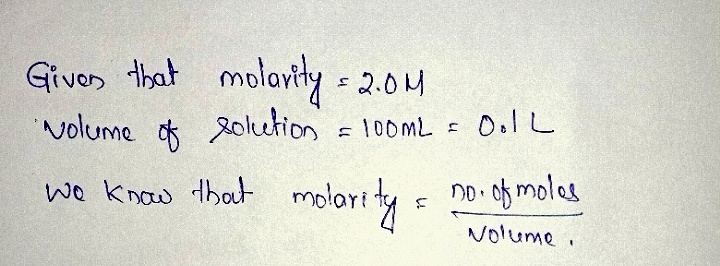 Given that molarity = 2.0M
Volume of solution = 100mL = 0.1 L
We know that molarity = no. of moles / Volume.